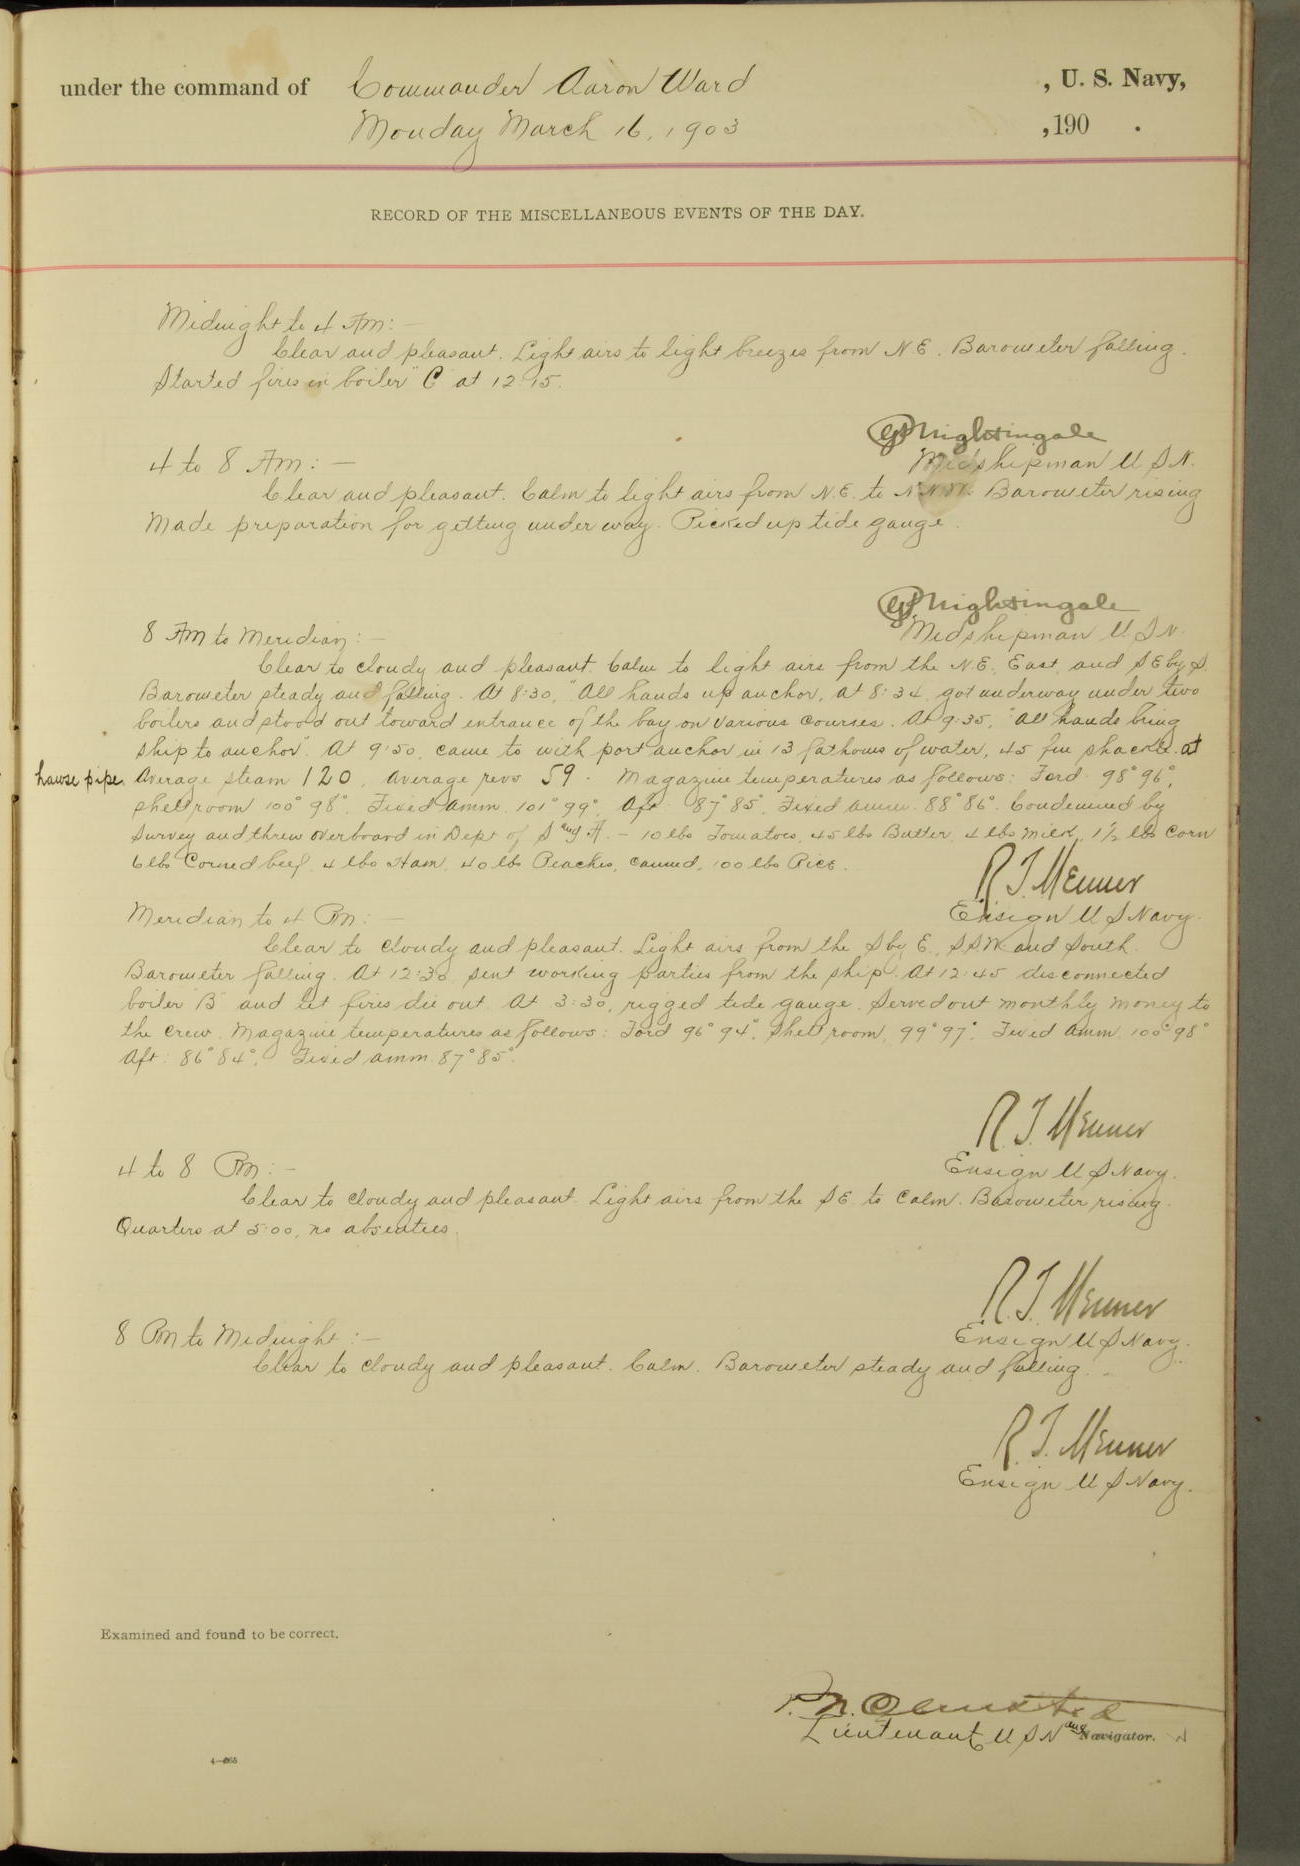 under the command of Commander Aaron Ward , U. S. Navy,
Monday March 16, 1903 ,190 .
RECORD OF THE MISCELLANEOUS EVENTS OF THE DAY.
Midnight to 4 Am: —
Clear and pleasant. Light airs to light breezes from N E. Barometer falling.
Started fires in boiler "C" at 12:15.
Nightingale
4 to 8 Am: —
Midshipman U S N.
Clear and pleasant. Calm to light airs from N.E. to N.N.W. Barometer rising
Made preparation for getting under way. Picked up tide gauge.
Nightingale
8 Am to Meridian: —
Midshipman U S N.
Clear to cloudy and pleasant. Calm to light airs from the N.E., East, and S E by S.
Barometer steady and falling. At 8:30, "All hands up anchor, at 8:34, got underway under two
boilers and stood out toward entrance of the bay on various courses. At 9:35, "All hands bring
ship to anchor". At 9:50 came to with port anchor in 13 fathoms of water, 45 fm shackle at
hawse pipe. Average steam 120, average revs 59. Magazine temperatures as follows: Ford 98° 96°,
shell room 100° 98°. Fixed amm. 101° 99°. Aft 87° 85°. Fixed amm. 88° 86°. Condemned by
survey and threw overboard in Dept of S and A. — 10 lbs Tomatoes, 45 lbs Butter, 4 lbs milk, 1½ lbs Corn
6 lbs Corned beef, 4 lbs Ham, 40 lbs Peaches, canned, 100 lbs Rice.
R. T. Menner
Ensign U S Navy.
Meridian to 4 Pm: —
Clear to cloudy and pleasant. Light airs from the S by E., S S W. and South.
Barometer falling. At 12:30 sent working parties from the ship. At 12:45 disconnected
boiler "B" and let fires die out. At 3:30, rigged tide gauge. Served out monthly money to
the crew. Magazine temperatures as follows: Ford 96° 94°. Shell room, 99° 97°. Fixed amm. 100° 98°
Aft: 86° 84°. Fixed amm. 87° 85°.
R. T. Menner
4 to 8 Pm: —
Ensign U S Navy.
Clear to cloudy and pleasant. Light airs from the S E. to calm. Barometer rising.
Quarters at 5:00, no absentees.
R. T. Menner
8 Pm to Midnight: —
Ensign U S Navy.
Clear to cloudy and pleasant. Calm. Barometer steady and falling.
R. T. Menner
Ensign U S Navy.
Examined and found to be correct.
P. N. Olmsted
Lieutenant U S N and Navigator.